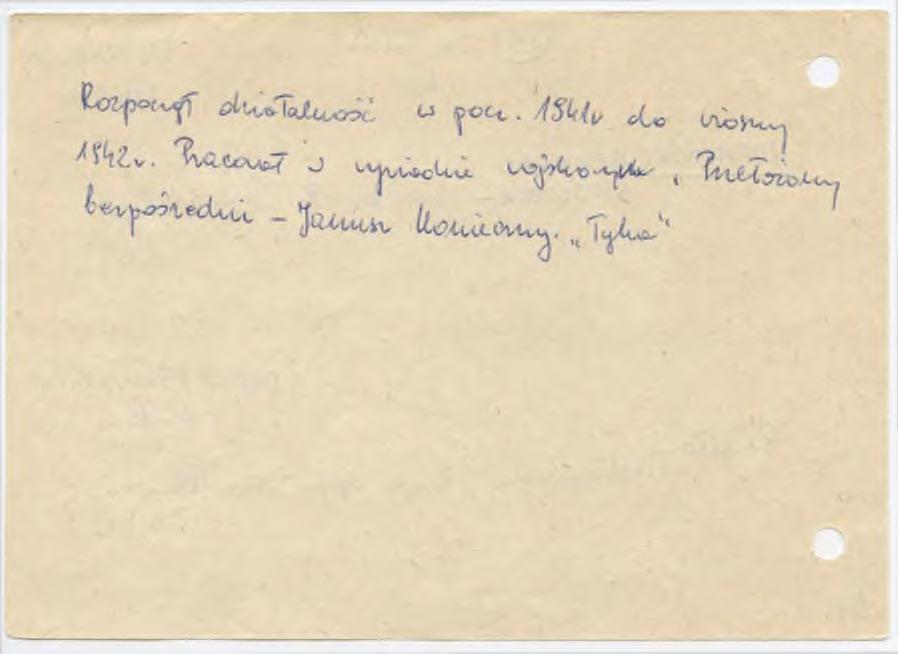 Rozpoczął działalność w pocz. 1941r do wiosny
1942r. Pracował w wywiadzie wojskowym. Przełożony
bezpośredni - Janusz Konieczny. „Tyka"